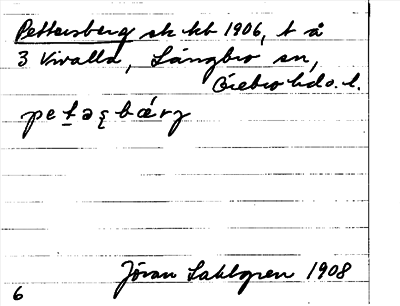 Pettersberg sk kb 1906, t å
3 Vivalla, Långbro sn,
Örebro hd o. l.
petəȿbǽrj
Jöran Sahlgren 1908
6